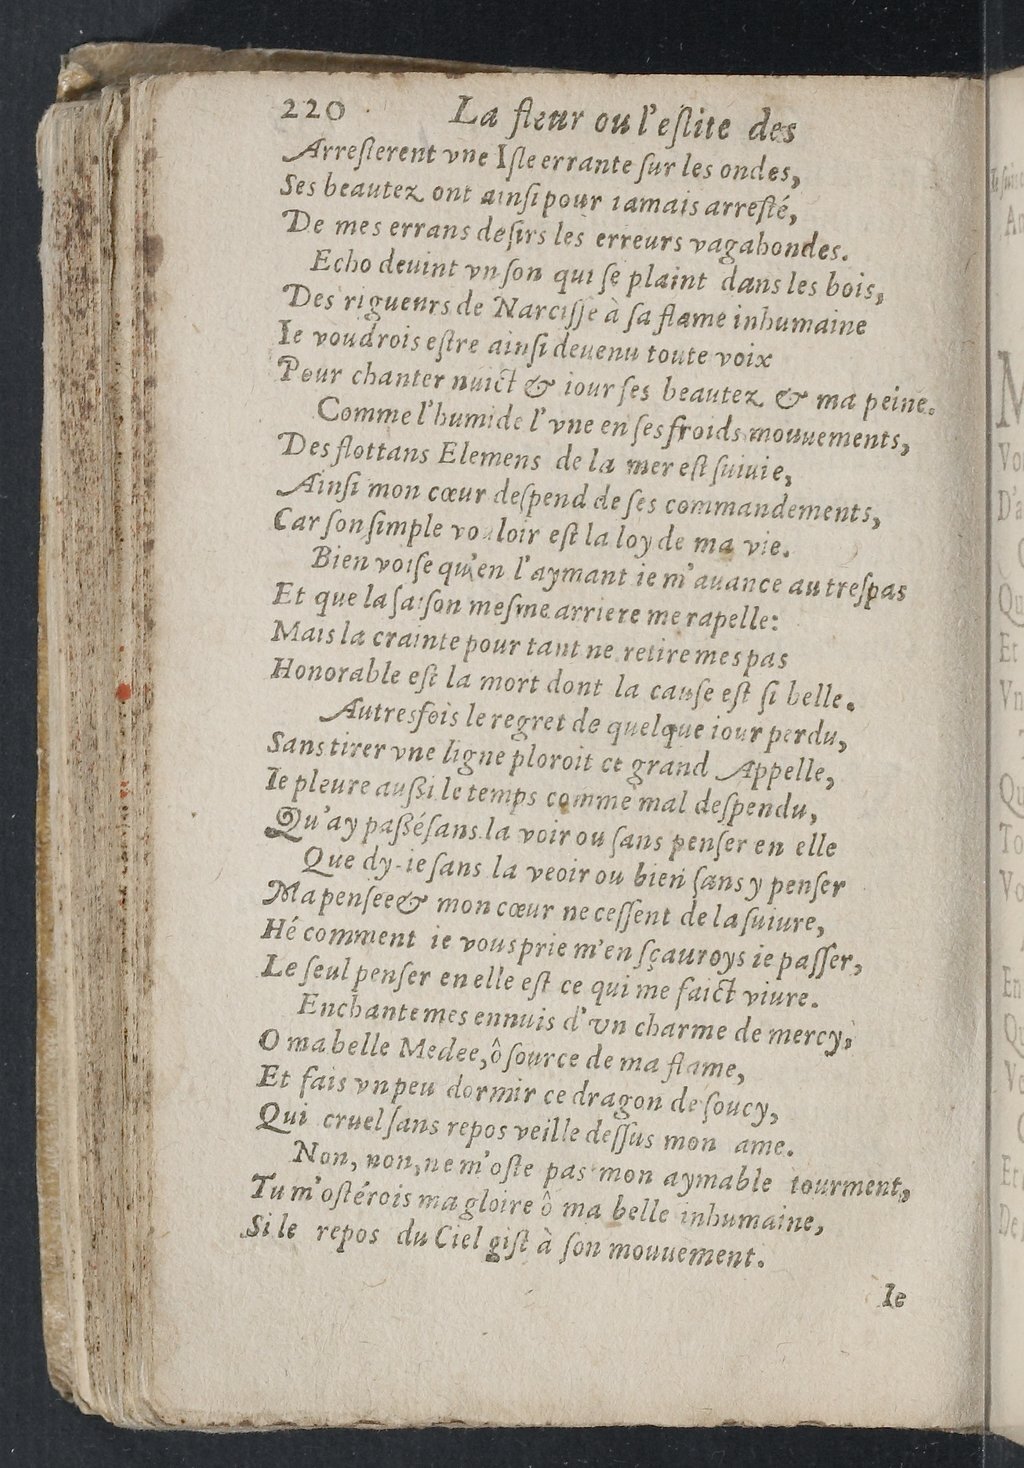 220 La fleur ou l'eſlite des
Arreſterent vne Iſle errante ſur les ondes,
Ses beautez ont ainſi pour iamais arreſté,
De mes errans deſirs les erreurs vagabondes.
Echo deuint vn ſon qui ſe plaint dans les bois,
Des rigueurs de Narciſſe à ſa flame inhumaine
Ie voudrois eſtre ainſi deuenu toute voix
Pour chanter nuict & iour ſes beautez & ma peine.
Comme l'humide l'vne en ſes froids mouuements,
Des flottans Elemens de la mer eſt ſuiuie,
Ainſi mon cœur deſpend de ſes commandements,
Car ſon ſimple vouloir eſt la loy de ma vie.
Bien voiſe qu'en l'aymant ie m'auance au treſpas
Et que la raiſon meſme arriere me rapelle:
Mais la crainte pour tant ne retire mes pas
Honorable eſt la mort dont la cauſe eſt ſi belle.
Autresfois le regret de quelque iour perdu,
Sans tirer vne ligne ploroit ce grand Appelle,
Ie pleure außi le temps comme mal deſpendu,
Qu'ay paßé ſans la voir ou ſans penſer en elle
Que dy-ie ſans la veoir ou bien ſans y penſer
Ma penſee & mon cœur ne ceſſent de la ſuiure,
Hé comment ie vous prie m'en ſçauroys ie paſſer,
Le ſeul penſer en elle eſt ce qui me faict viure.
Enchante mes ennuis d'vn charme de mercy,
O ma belle Medee, ô ſource de ma flame,
Et fais vn peu dormir ce dragon de ſoucy,
Qui cruel ſans repos veille deſſus mon ame.
Non, non, ne m'oſte pas mon aymable tourment,
Tu m'oſtérois ma gloire ô ma belle inhumaine,
Si le repos du Ciel giſt à ſon mouuement.
Ie